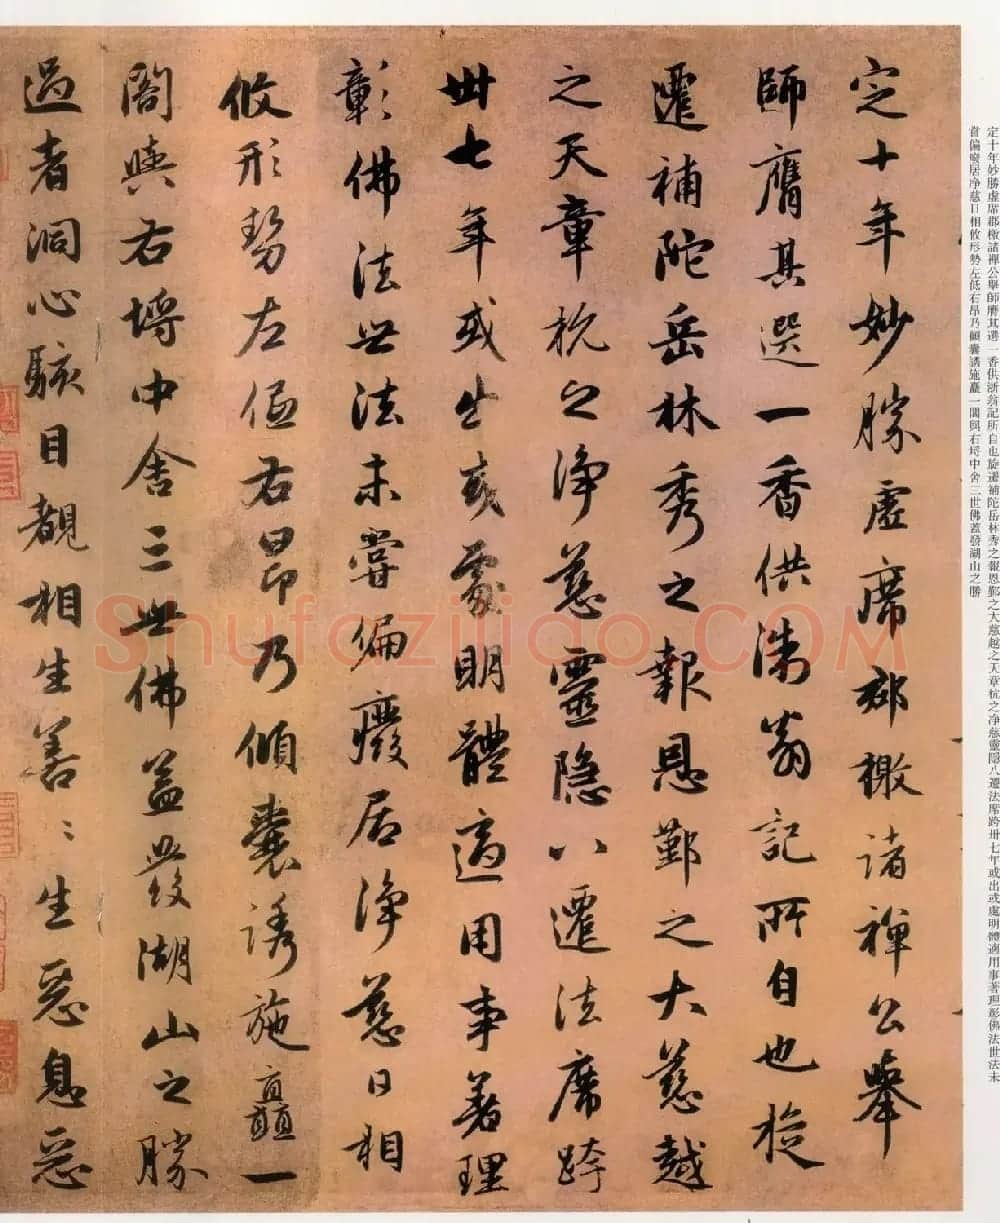 定十年妙勝虛席郡檄諸禪公舉師膺其選一香供浙翁記所自也旋遷補陀岳林秀之報恩鄞之大慈越之天章杭之净慈靈隱八遷法席跨卅七年或出或處明體適用事著理彰佛法世法未
嘗偏癈居净慈日相攸形勢左低右昂乃傾囊誘施矗一閣與右埒中舍三世佛蓋發湖山之勝
定十年妙勝虛席郡檄諸禪公舉
師膺其選一香供浙翁記所自也旋
遷補陀岳林秀之報恩鄞之大慈越
之天章杭之淨慈靈隱八遷法席跨
卅七年或出或處明體適用事著理
彰佛法世法未嘗偏癈居淨慈日相
攸形勢左低右昂乃傾囊誘施矗一
閣與右埒中舍三世佛蓋發湖山之勝
過者洞心駭目覩相生善〻生惡息惡
Shufaziliao.COM